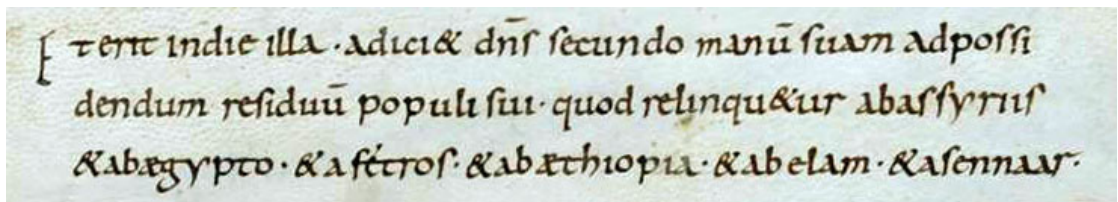 Et erit in die illa · adici& dn̄s secundo manū suam ad possi
dendum residuū populi sui · quod relinqu&ur ab assyriis
& ab ægypto · & a fétros · & ab æthiopia · & ab elam · & a sennaar ·